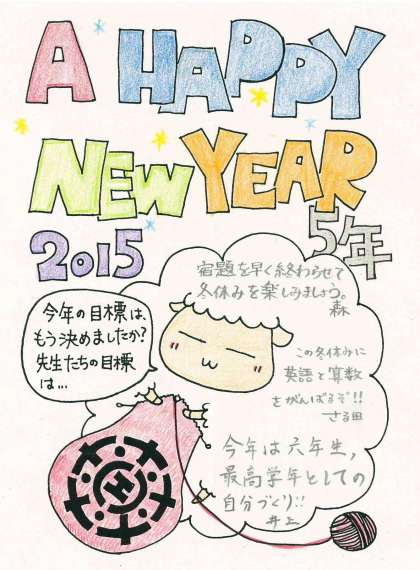 A HAPPY
NEW YEAR
2015
5年
宿題を早く終わらせて
冬休みを楽しみましょう。
森
今年の目標は、
もう決めましたか?
先生たちの目標
は…
この冬休みに
英語と算数
をがんばるぞ!!
さる田
今年は六年生,
最高学年としての
自分づくり!!
井上